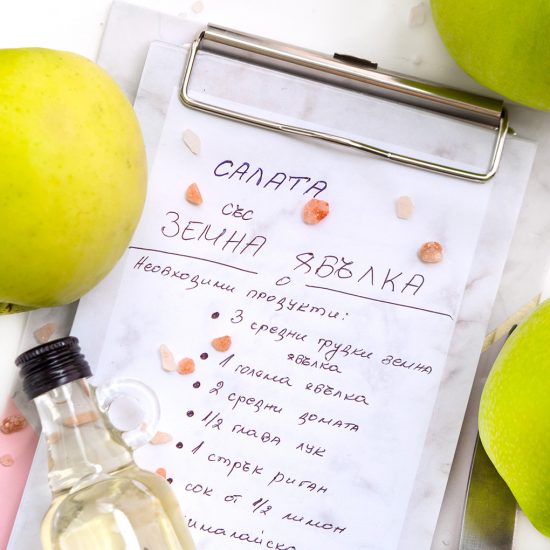 САЛАТА
СЪС
ЗЕМНА ЯБЪЛКА
Необходими продукти:
• 3 средни грудки земна
ябълка
• 1 голяма ябълка
• 2 средни домата
• 1/2 глава лук
• 1 стрък риган
• сок от 1/2 лимон